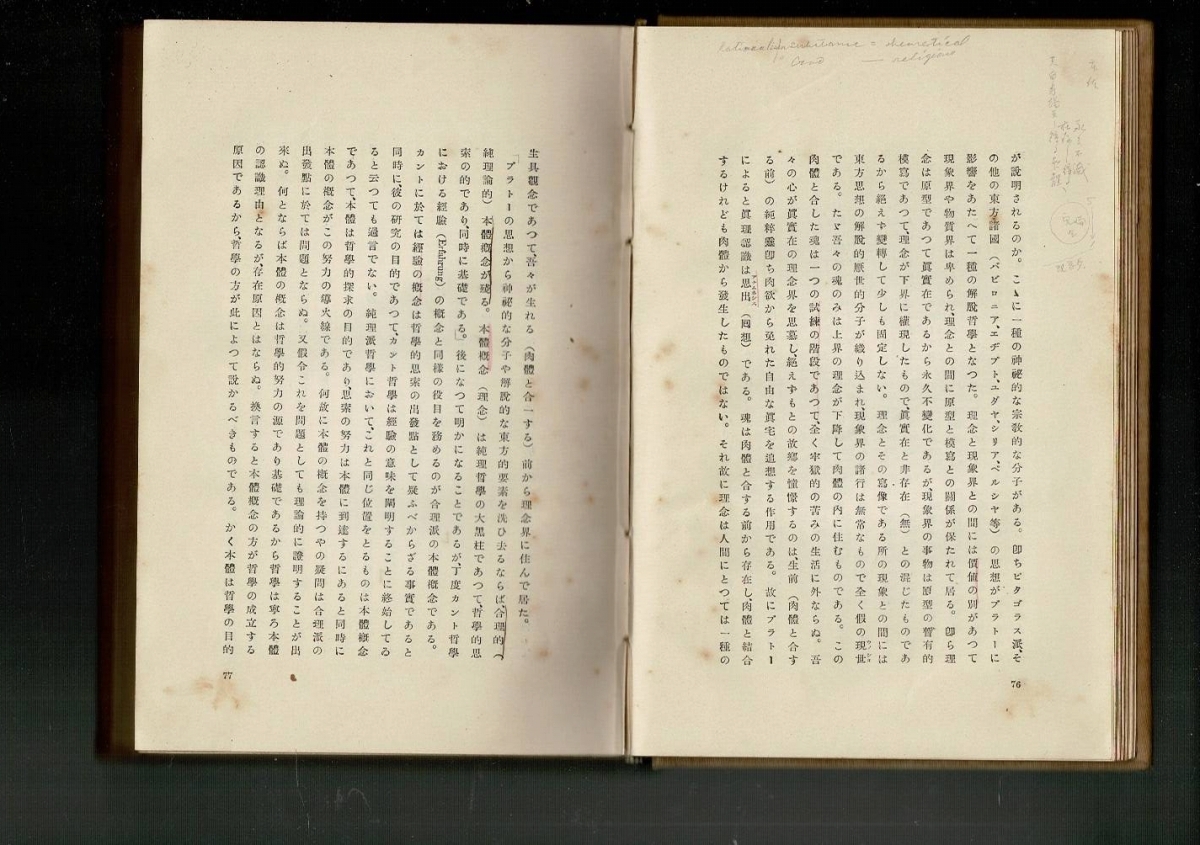 が說明されるのか。こゝに一種の神祕的な宗敎的な分子がある。卽ちピタゴラス派、そ
の他の東方諸國（バビロニア、エヂプト、ユダヤ、シリア、ペルシヤ等）の思想がプラトーに
影響をあたへて一種の解脫哲學となつた。理念と現象界との間には價値の別があつて
現象界や物質界は卑められ、理念との間に原型と模寫との關係が保たれて居る。卽ち理
念は原型であつて眞實在であるから永久不變化であるが現象界の事物は原型の暫有的
模寫であつて、理念が下界に權現したもので眞實在と非存在（無）との混じたものであ
るから絕えず變轉して少しも固定しない。理念とその寫像である所の現象との間には
東方思想の解脫的厭世的分子が織り込まれ、現象界の諸行は無常なもので全く假の現世
である。たゞ吾々の魂のみは上界の理念が下降して肉體の內に住むものである。この
肉體と合した魂は一つの試練の階段であつて、全く牢獄的の苦みの生活に外ならぬ。吾
々の心が眞實在の理念界を思慕し、絕えずもとの故鄕を憧憬するのは、生前（肉體と合す
る前）の純粹靈卽ち肉欲から免れた自由な眞宅を追想する作用である。故にプラトー
によると眞理認識は思出（囘想）である。魂は肉體と合する前から存在し、肉體と結合
するけれども肉體から發生したものではない。それ故に理念は人間にとつては一種の
76
生具觀念であつて、吾々が生れる（肉體と合一する）前から理念界に住んで居た。
「プラトーの思想から神祕的な分子や解脫的な東方的要素を洗ひ去るならば、合理的（
純理論的）本體槪念が殘る。本體槪念（理念）は純理哲學の大黑柱であつて、哲學的思
索の的であり、同時に基礎である。」後になつて明かになることであるが、丁度カント哲學
における經驗（Erfahrung）の槪念と同樣の役目を務めるのが合理派の本體槪念である。
カントに於ては經驗の槪念は哲學的思索の出發點として疑ふべからざる事實であると
同時に、彼の硏究の目的であつて、カント哲學は經驗の意味を闡明することに終始してゐ
ると云つても過言でない。純理派哲學において、これと同じ位置をとるものは本體槪念
であつて、本體は哲學的探求の目的であり、思索の努力は本體に到達するにあると同時に
本體の槪念がこの努力の導火線である。何故に本體の槪念を持つやの疑問は合理派の
出發點に於ては問題とならぬ。又假令これを問題としても理論的に證明することが出
來ぬ。何とならば本體の槪念は哲學的努力の源であり基礎であるから哲學は寧ろ本體
の認識理由となるが、存在原因とはならぬ。換言すると本體槪念の方が哲學の成立する
原因であるから、哲學の方が此によつて說かるべきものである。かく本體は哲學の目的
77